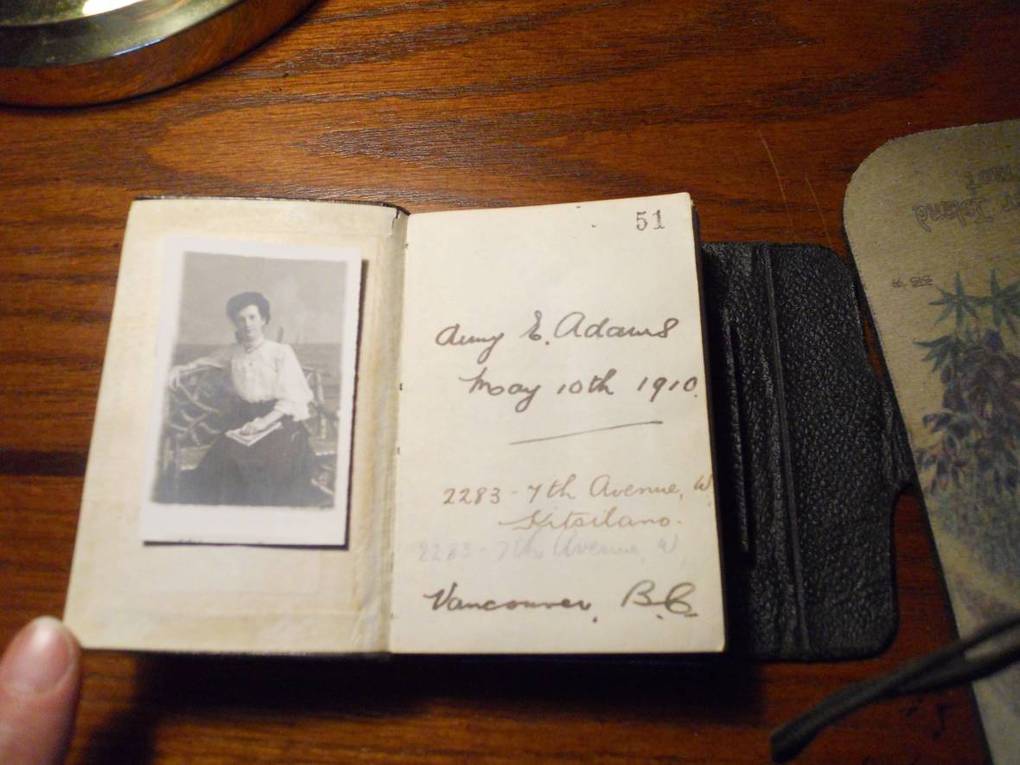 51
Amy E. Adams
May 10th 1910.
2283 - 7th Avenue, W.
Kitsilano.
2283 - 7th Avenue, W
Vancouver, B.C.
Island